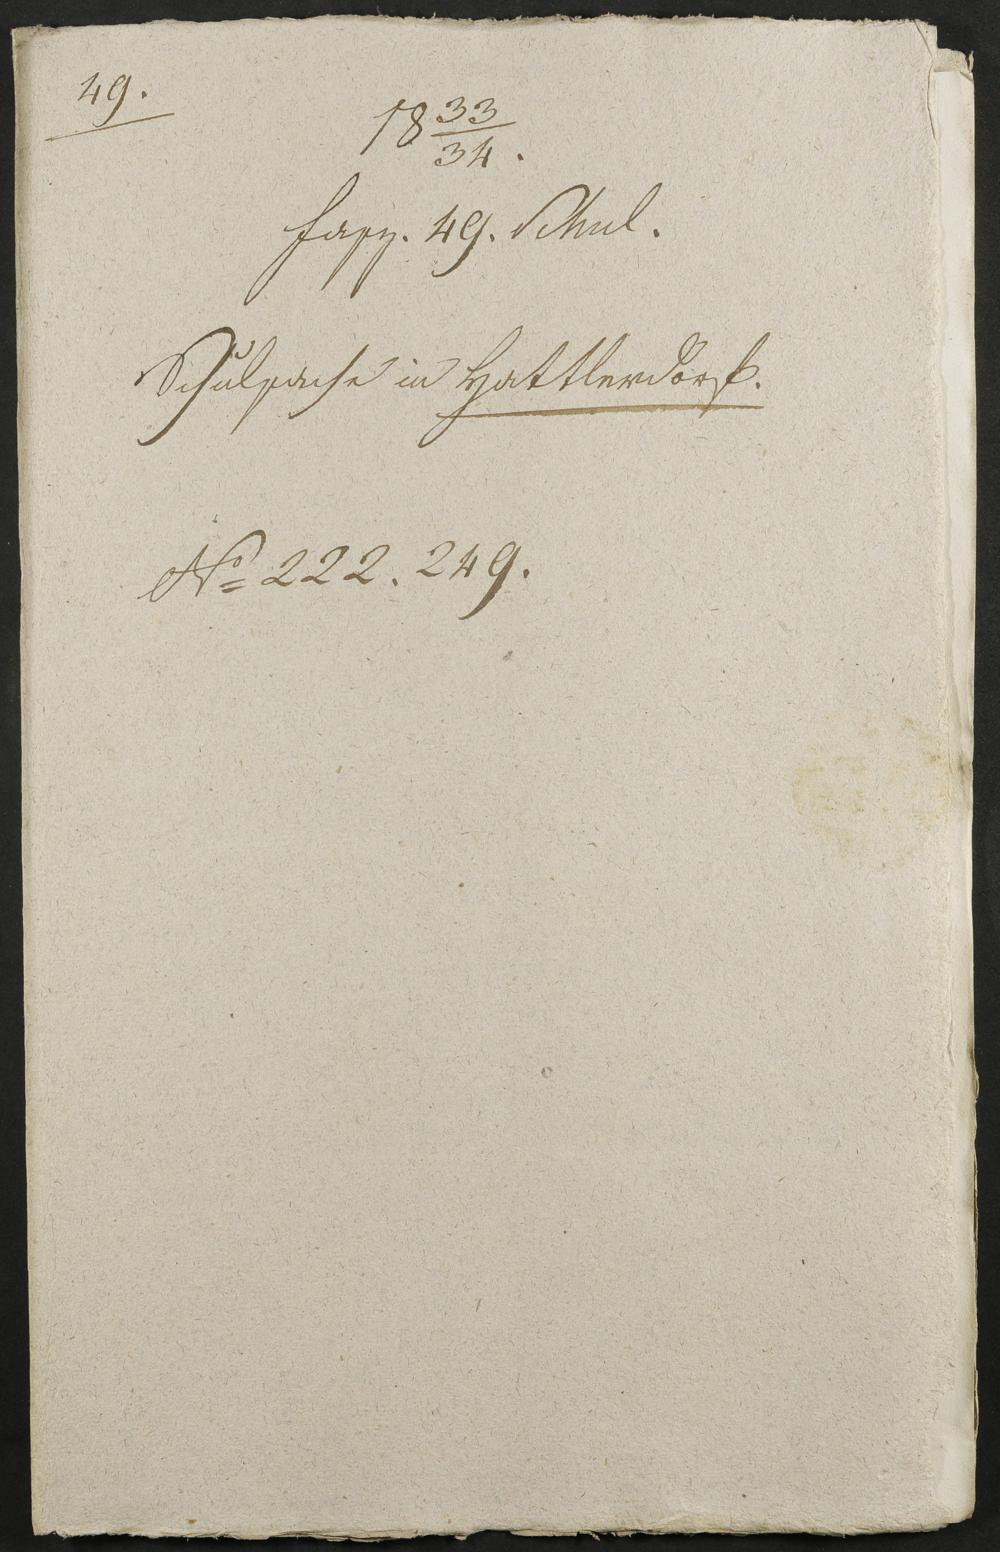 49.
18 33/34.
Fasz. 49. Schul.
Schulsache in Hattlerdorf.
No 222. 249.